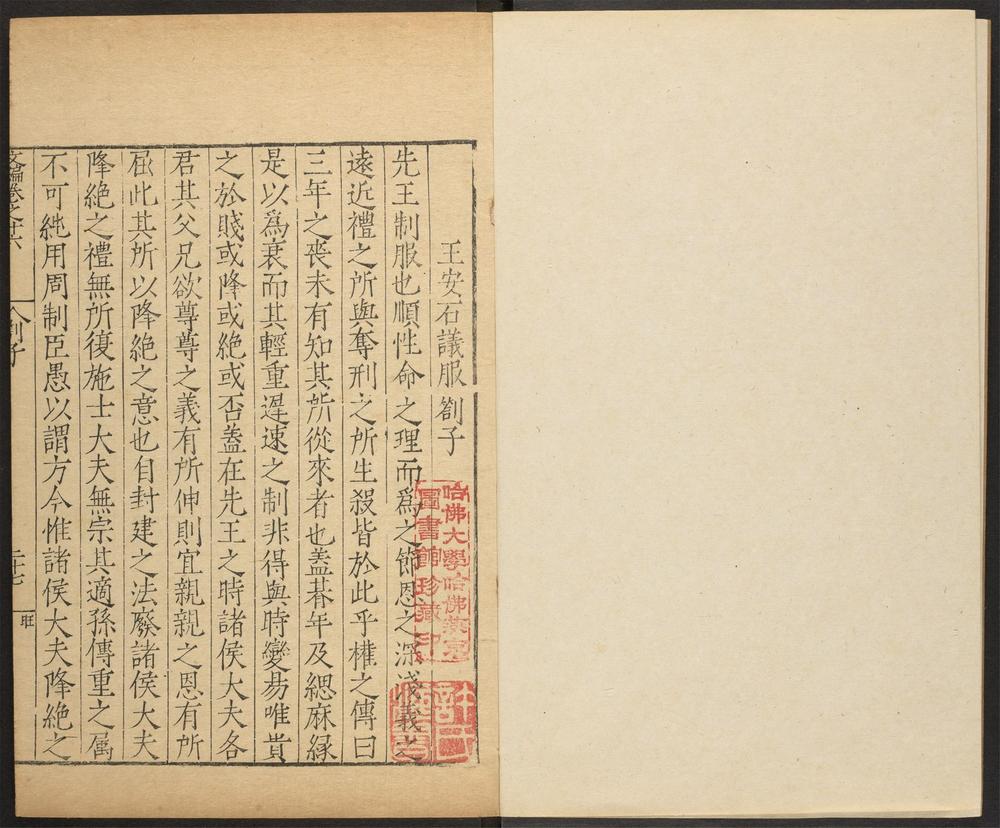 王安石議服劄子
先王制服也順性命之理而爲之節恩之深淺義之
遠近禮之所與奪刑之所生殺皆於此乎權之傳曰
三年之喪未有知其所從來者也蓋朞年及緦麻緣
是以爲衰而其輕重遲速之制非得與時變易唯貴
之於賤或降或絶或否蓋在先王之時諸侯大夫各
君其父兄欲尊尊之義有所伸則宜親親之恩有所
屈此其所以降絶之意也自封建之法廢諸侯大夫
降絶之禮無所復施士大夫無宗其適孫傳重之属
不可純用周制臣愚以謂方今惟諸侯大夫降絶之
文編卷之廾六
劄子
二十七
哈佛大學哈佛燕京
圖書館珍藏印